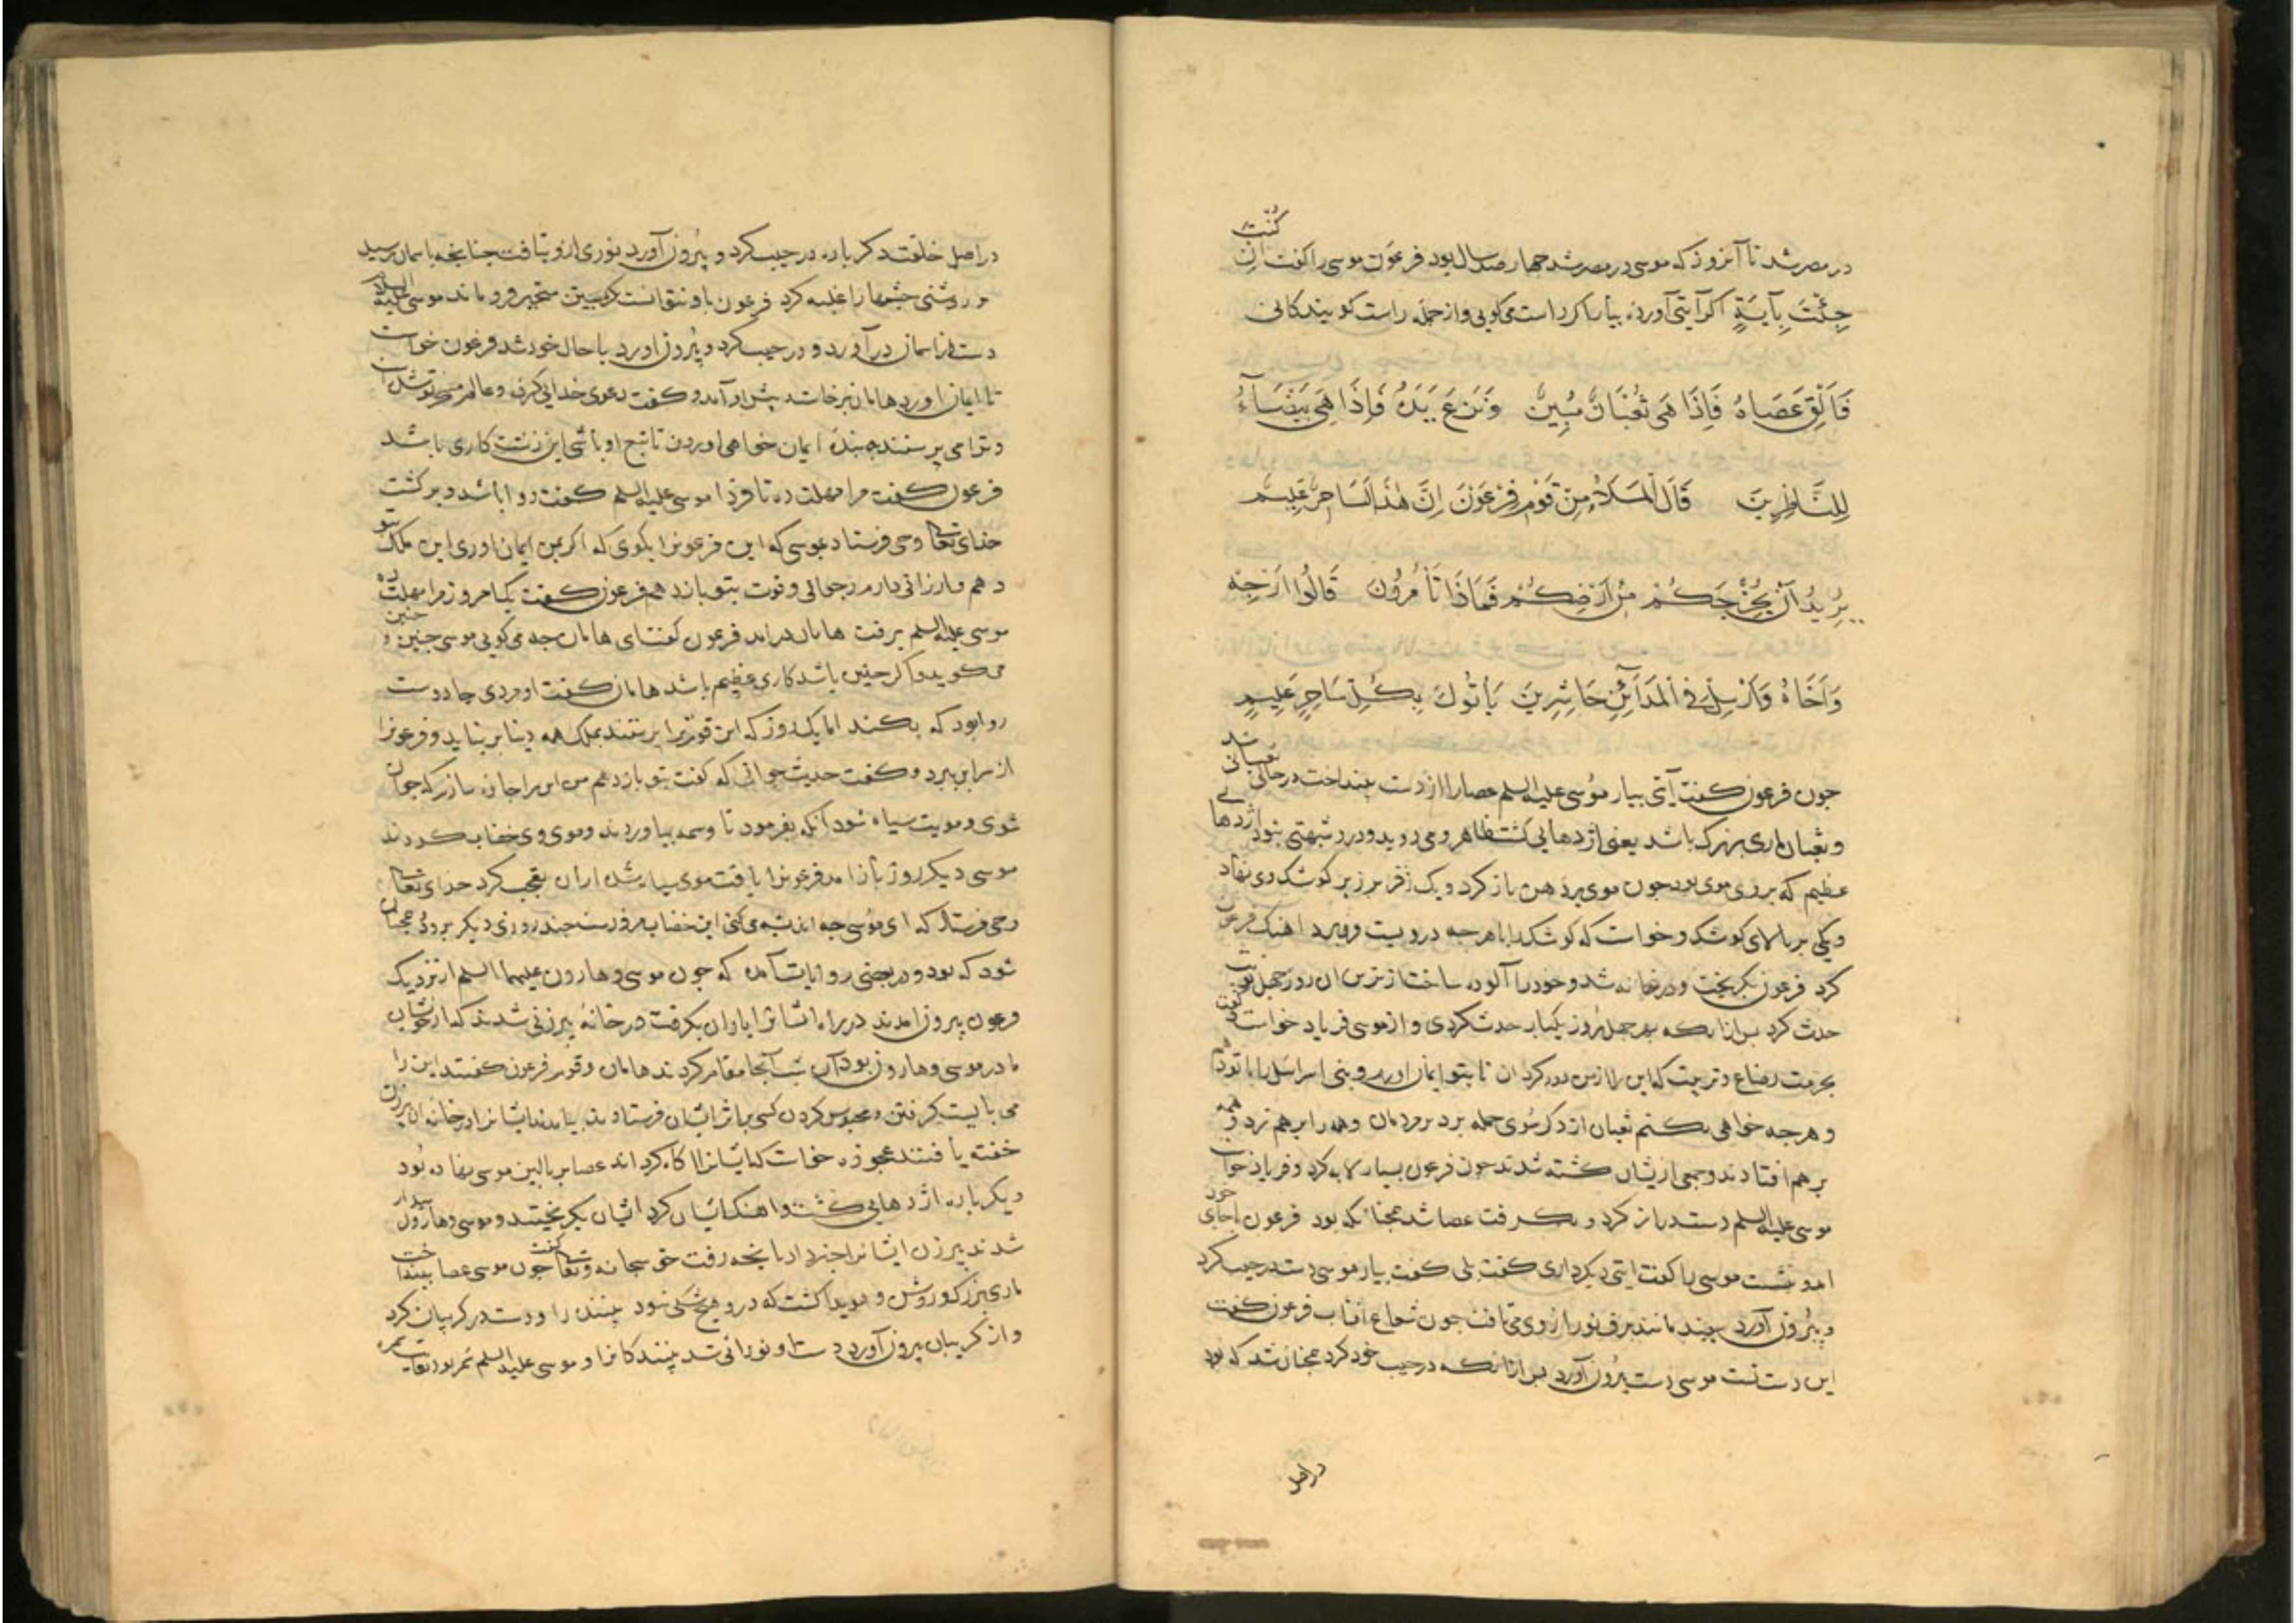 در مصر شد تا آنروز که موسی در مصر شد چهار صد سال بود فرعون موسی را کفت ان کنت
جِئتَ بِآیَةٍ اکر آیتی آورده بیار اکر راست می کویی و از جمله راست کویندکانی
فَاَلْقٰی عَصَاهُ فَاِذَا هِیَ ثُعْبَانٌ مُبِینٌ وَنَزَعَ یَدَهُ فَاِذَا هِیَ بَیْضَآءُ
لِلنَّاظِرِینَ قَالَ الْمَلَاُ مِنْ قَوْمِ فِرْعَوْنَ اِنَّ هٰذَا لَسَاحِرٌ عَلِیمٌ
یُرِیدُ اَنْ یُخْرِجَکُمْ مِنْ اَرْضِکُمْ فَمَاذَا تَأْمُرُونَ قَالُوا اَرْجِهْ
وَاَخَاهُ وَاَرْسِلْ فِی الْمَدَآئِنِ حَاشِرِینَ یَاْتُوكَ بِکُلِّ سَاحِرٍ عَلِیمٍ
جون فرعون کفت آیتی بیار موسی علیه السلم عصا را از دست بینداخت در حال ثعبانی شد
و ثعبان ماری بزرک باشد یعنی اژدهایی کشت ظاهر و می دوید و درو شبهتی نبود اژدهایی
عظیم که بر وی موی بود جون موی بز دهن باز کرد و یک زفر بر زیر کوشک وی نهاد
و یکی بر بالای کوشک و خواست که کوشک را با هرجه درویست فرو برد اهنک فرعون
کرد فرعون بکریخت و در خانه شد و خود را آلوده ساخت از ترس ان روز جهل نوبت
حدث کرد بس از انکه بهر جهل روز یکبار حدث کردی و از موسی فریاد خواست کفت
بحرمت رضاع و تربیت که این را از من دور کردان تا بتو ایمان اورم و بنی اسرائیل را با تو دهم
و هرجه خواهی بکنم ثعبان از دکر سوی حمله برد بر مردمان و همه را بر هم زد و همه
بر هم افتادند و جمعی ازیشان کشته شدند جون فرعون بسیار لابه کرد و فریاد خواست
موسی علیه السلم دست دراز کرد و بکرفت عصا شد همجنانکه بود فرعون باجای خود
امد و نشست موسی را کفت ایتی دیکر داری کفت بلی کفت بیار موسی دست در جیب کرد
و بیرون آورد سپید مانند برف نور از وی می تافت جون شعاع افتاب فرعون کفت
این دست تست موسی دست بیرون آورد بس از انکه در جیب خود کرد همجنان شد که بود
در اصل
در اصل خلقت دکر باره در جیب کرد و بیرون آورد نوری ازو بتافت جنانجه باسمان رسید
و روشنی جشمها را غلبه کرد فرعون با و نتوانست نکریستن متحیر فرو ماند موسی علیه السلام
دست فرا سمان در آورد و در جیب کرد و بیرون اورد با حال خود شد فرعون خواست
تا ایمان اورد هامان برخاست و پیش او آمد و کفت دعوی خدایی کرده و عالم مسخر تو شده اند
و ترا می پرستند به بنده ایمان خواهی اوردن تا تبع او باشی این زشت کاری باشد
فرعون کفت مرا مهلت ده تا فردا موسی علیه السلم کفت روا باشد و برکشت
خدای تعالی وحی فرستاد بموسی که این فرعونرا بکوی که اکر بمن ایمان اوری این ملک بتو
دهم و ارزانی دارم و جوانی و قوت بتو باز دهم فرعون کفت یک امروز مرا مهلت ده
موسی علیه السلم برفت هامان درامد فرعون کفت ای هامان جه می کویی موسی جنین و جنین
می کوید و اکر جنین باشد کاری عظیم باشد هامان کفت او مردی جادوست
روا بود که بکند اما یک روز که این قوم ترا پرستند بملک همه دینا بر نیاید و فرعونرا
از سر این ببرد و کفت حدیث جوانی که کفت بتو باز دهم من این را جاره سازم که جوان
شوی و مویت سیاه شود آنکه بفرمود تا وسمه بیاوردند و موی وی خضاب کردند
موسی دیکر روز باز امد فرعونرا یافت موی سیاه شده از ان تعجب کرد خدای تعالی
وحی فرستاد که ای موسی جه اندیشه می کنی این خضاب مزورست جند روزی دیکر برود همجنان
شود که بود و در بعضی روایات آمده که جون موسی و هارون علیهما السلم از نزدیک
فرعون بیرون امدند در راه ایشانرا باران بکرفت در خانهٔ پیرزنی شدند که از خویشان
مادر موسی و هارون بود آن شب آنجا مقام کردند هامان و قوم فرعون کفتند این را
می بایست کرفتن و محبوس کردن کسی باثر ایشان فرستادند بیامدند ایشانرا در خانه ان پیرزن
خفته یافتند عجوزه خواست که ایشانرا اکاه کرداند عصا بر بالین موسی نهاده بود
دیکر باره اژدهایی کشت و اهنک ایشان کرد ایشان بکریختند و موسی و هارون بیدار
شدند پیرزن ایشانرا خبر داد بانجه رفت حق سبحانه و تعالی کفت جون موسی عصا بینداخت
ماری بزرک و روشن و هویدا کشت که درو هیچ شکی نبود بیننده را و دست در کریبان کرد
و از کریبان بیرون آورد دست او نورانی شد بینندکانرا و موسی علیه السلم